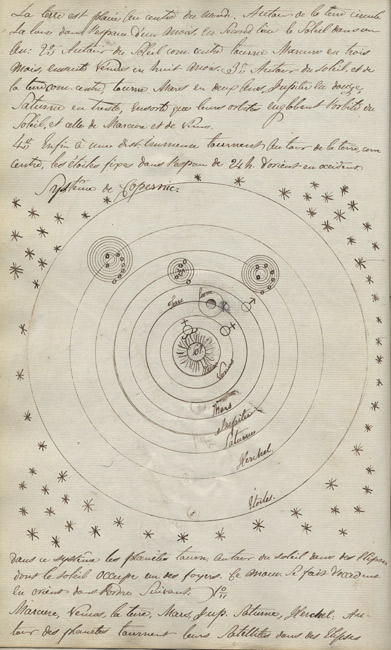 La terre est placée au centre du monde, Autour de la terre circule
La lune dans l'espace d'un mois, en second lieu le Soleil dans un
an. 2º Autour du Soleil com. centre tourne Mercure en trois
mois ensuite Vénus en huit mois. 3º. Autour du soleil, et de
la terre com. centre, tourne Mars en deux ans, Jupiter en douze,
Saturne en trente, ensorte que leurs orbites englobent l'orbite du
Soleil, et celle de Mercure et de Vénus.
4º Enfin à une dist. immense tournent autour de la terre, com
centre, les étoiles fixes dans l'espace de 24h. d'orient en occident.
Système de Copernic.
Terre
lune
Vénus
Mars
Jupiter
Saturne
Herchel
Étoiles.
dans ce système les planètes tourn. autour du soleil dans des Elipses
dont le soleil occupe un des foyers. Ce mouv. se fait d'occident
en orient dans l'ordre Suivant.
Mercure, Vénus, la terre, Mars, Jup. Saturne, Herchel. Au-
tour des planètes tournent leurs Satellites dans des Elipses